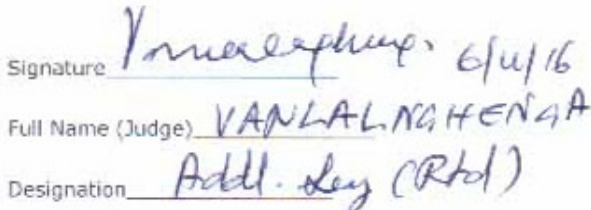 Signature 6/4/16
Full Name (Judge) VANLALNGHENGA
Designation Addl. Secy (Rtd)